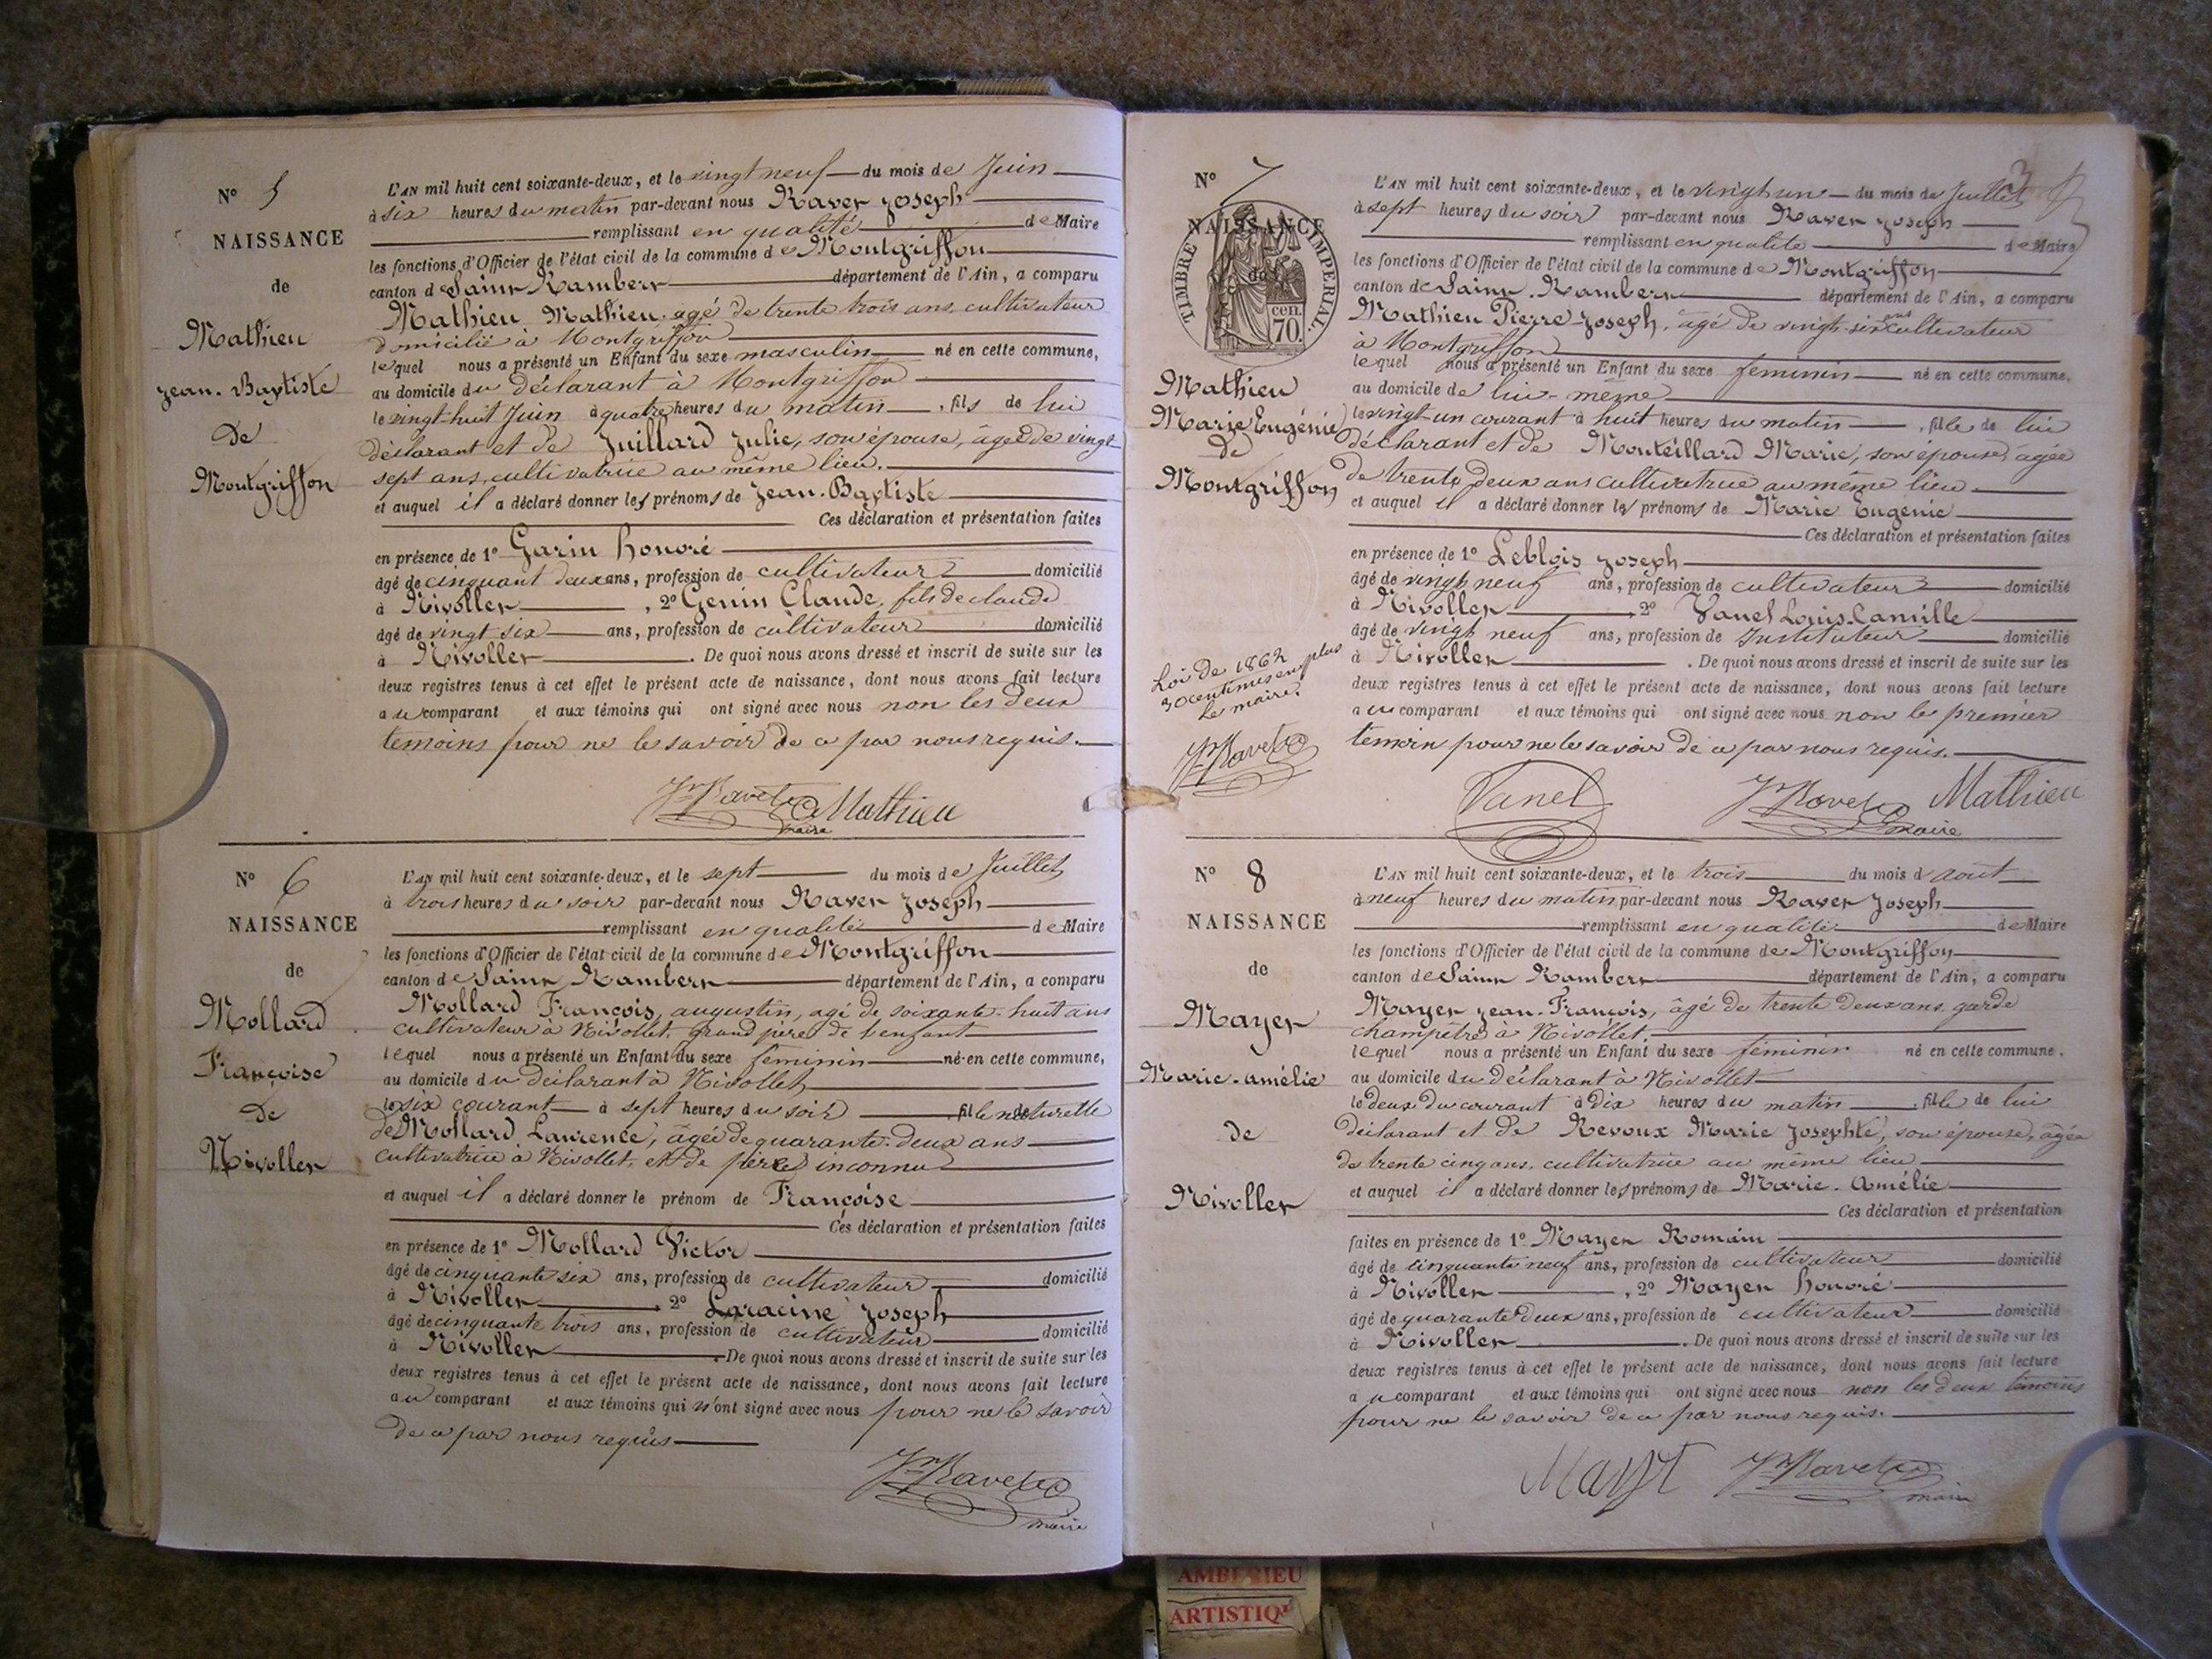 N° 5
NAISSANCE
de
Mathieu
Jean-Baptiste
De
Montgriffon
L'AN mil huit cent soixante-deux, et le vingt neuf du mois de Juin
à six heures du matin par-devant nous Ravet Joseph
remplissant en qualité de Maire
les fonctions d'Officier de l'état civil de la commune de Montgriffon
canton de Saint Rambert département de l'Ain, a comparu
Mathieu Mathieu, agé de trente trois ans, cultivateur
domicilié à Montgriffon
lequel nous a présenté un Enfant du sexe masculin né en cette commune,
au domicile du déclarant à Montgriffon
le vingt-huit Juin à quatre heures du matin, fils de lui
déclarant et de Juillard Julie, son épouse, âgée de vingt
sept ans, cultivatrice au même lieu.
et auquel il a déclaré donner les prénoms de Jean-Baptiste
Ces déclaration et présentation faites
en présence de 1° Garin honoré
âgé de cinquant deux ans, profession de cultivateur domicilié
à Nivollet, 2° Genin Claude, fils de claude
âgé de vingt six ans, profession de cultivateur domicilié
à Nivollet. De quoi nous avons dressé et inscrit de suite sur les
deux registres tenus à cet effet le présent acte de naissance, dont nous avons fait lecture
au comparant et aux témoins qui ont signé avec nous non les deux
temoins pour ne le savoir de ce par nous requis.
Jh Ravet Mathieu
maire
N° 6
NAISSANCE
de
Mollard
Françoise
De
Nivollet
L'AN mil huit cent soixante-deux, et le sept du mois de Juillet
à trois heures du soir par-devant nous Ravet Joseph
remplissant en qualité de Maire
les fonctions d'Officier de l'état civil de la commune de Montgriffon
canton de Saint Rambert département de l'Ain, a comparu
Mollard François, augustin, agé de soixante-huit ans
cultivateur à Nivollet, grand père de l'enfant
lequel nous a présenté un Enfant du sexe féminin né en cette commune,
au domicile du déclarant à Nivollet
le six courant à sept heures du soir, fille naturelle
de Mollard Laurence, âgée de quarante-deux ans
cultivatrice à Nivollet, et de père inconnu
et auquel il a déclaré donner le prénom de Françoise
Ces déclaration et présentation faites
en présence de 1° Mollard Victor
âgé de cinquante six ans, profession de cultivateur domicilié
à Nivollet, 2° Laracine Joseph
âgé de cinquante trois ans, profession de cultivateur domicilié
à Nivollet. De quoi nous avons dressé et inscrit de suite sur les
deux registres tenus à cet effet le présent acte de naissance, dont nous avons fait lecture
au comparant et aux témoins qui n'ont signé avec nous pour ne le savoir
de ce par nous requis
Jh Ravet
maire
N° 7
NAISSANCE
de
TIMBRE IMPERIAL.
70 cen.
Mathieu
Marie Eugénie
de
Montgriffon
Loi de 1862
30 centimes en plus
Le maire.
Jh Ravet
L'AN mil huit cent soixante-deux, et le vingt un du mois de Juillet
à sept heures du soir par-devant nous Ravet Joseph
remplissant en qualité de Maire
les fonctions d'Officier de l'état civil de la commune de Montgriffon
canton de Saint-Rambert département de l'Ain, a comparu
Mathieu Pierre-Joseph, âgé de vingt-six ans cultivateur
à Montgriffon
lequel nous a présenté un Enfant du sexe féminin né en cette commune,
au domicile de lui-même
le vingt-un courant à huit heures du matin, fille de lui
déclarant et de Monteillard Marie, son épouse, âgée
de trente deux ans cultivatrice au même lieu.
et auquel il a déclaré donner les prénoms de Marie Eugénie
Ces déclaration et présentation faites
en présence de 1° Leblois Joseph
âgé de vingt neuf ans, profession de cultivateur domicilié
à Nivollet 2° Vanel Louis-Camille
âgé de vingt neuf ans, profession de Instituteur domicilié
à Nivollet. De quoi nous avons dressé et inscrit de suite sur les
deux registres tenus à cet effet le présent acte de naissance, dont nous avons fait lecture
au comparant et aux témoins qui ont signé avec nous non le premier
temoin pour ne le savoir de ce par nous requis.
Vanel Jh Ravet Mathieu
maire
N° 8
NAISSANCE
de
Mayet
Marie-amélie
de
Nivollet
L'AN mil huit cent soixante-deux, et le trois du mois d'aout
à neuf heures du matin par-devant nous Ravet Joseph
remplissant en qualité de Maire
les fonctions d'Officier de l'état civil de la commune de Montgriffon
canton de Saint Rambert département de l'Ain, a comparu
Mayet Jean-François, âgé de trente deux ans, garde
champêtre à Nivollet
lequel nous a présenté un Enfant du sexe féminin né en cette commune,
au domicile du déclarant à Nivollet
le deux du courant à dix heures du matin, fille de lui
déclarant et de Revoux Marie Josephte, son épouse, âgée
de trente cinq ans, cultivatrice au même lieu
et auquel il a déclaré donner les prénoms de Marie-Amélie
Ces déclaration et présentation
faites en présence de 1° Mayet Romain
âgé de cinquante neuf ans, profession de cultivateur domicilié
à Nivollet, 2° Mayet honoré
âgé de quarante deux ans, profession de cultivateur domicilié
à Nivollet. De quoi nous avons dressé et inscrit de suite sur les
deux registres tenus à cet effet le présent acte de naissance, dont nous avons fait lecture
au comparant et aux témoins qui ont signé avec nous non les deux témoins
pour ne le savoir de ce par nous requis.
Mayet Jh Ravet
maire
AMBERIEU
ARTISTIQ